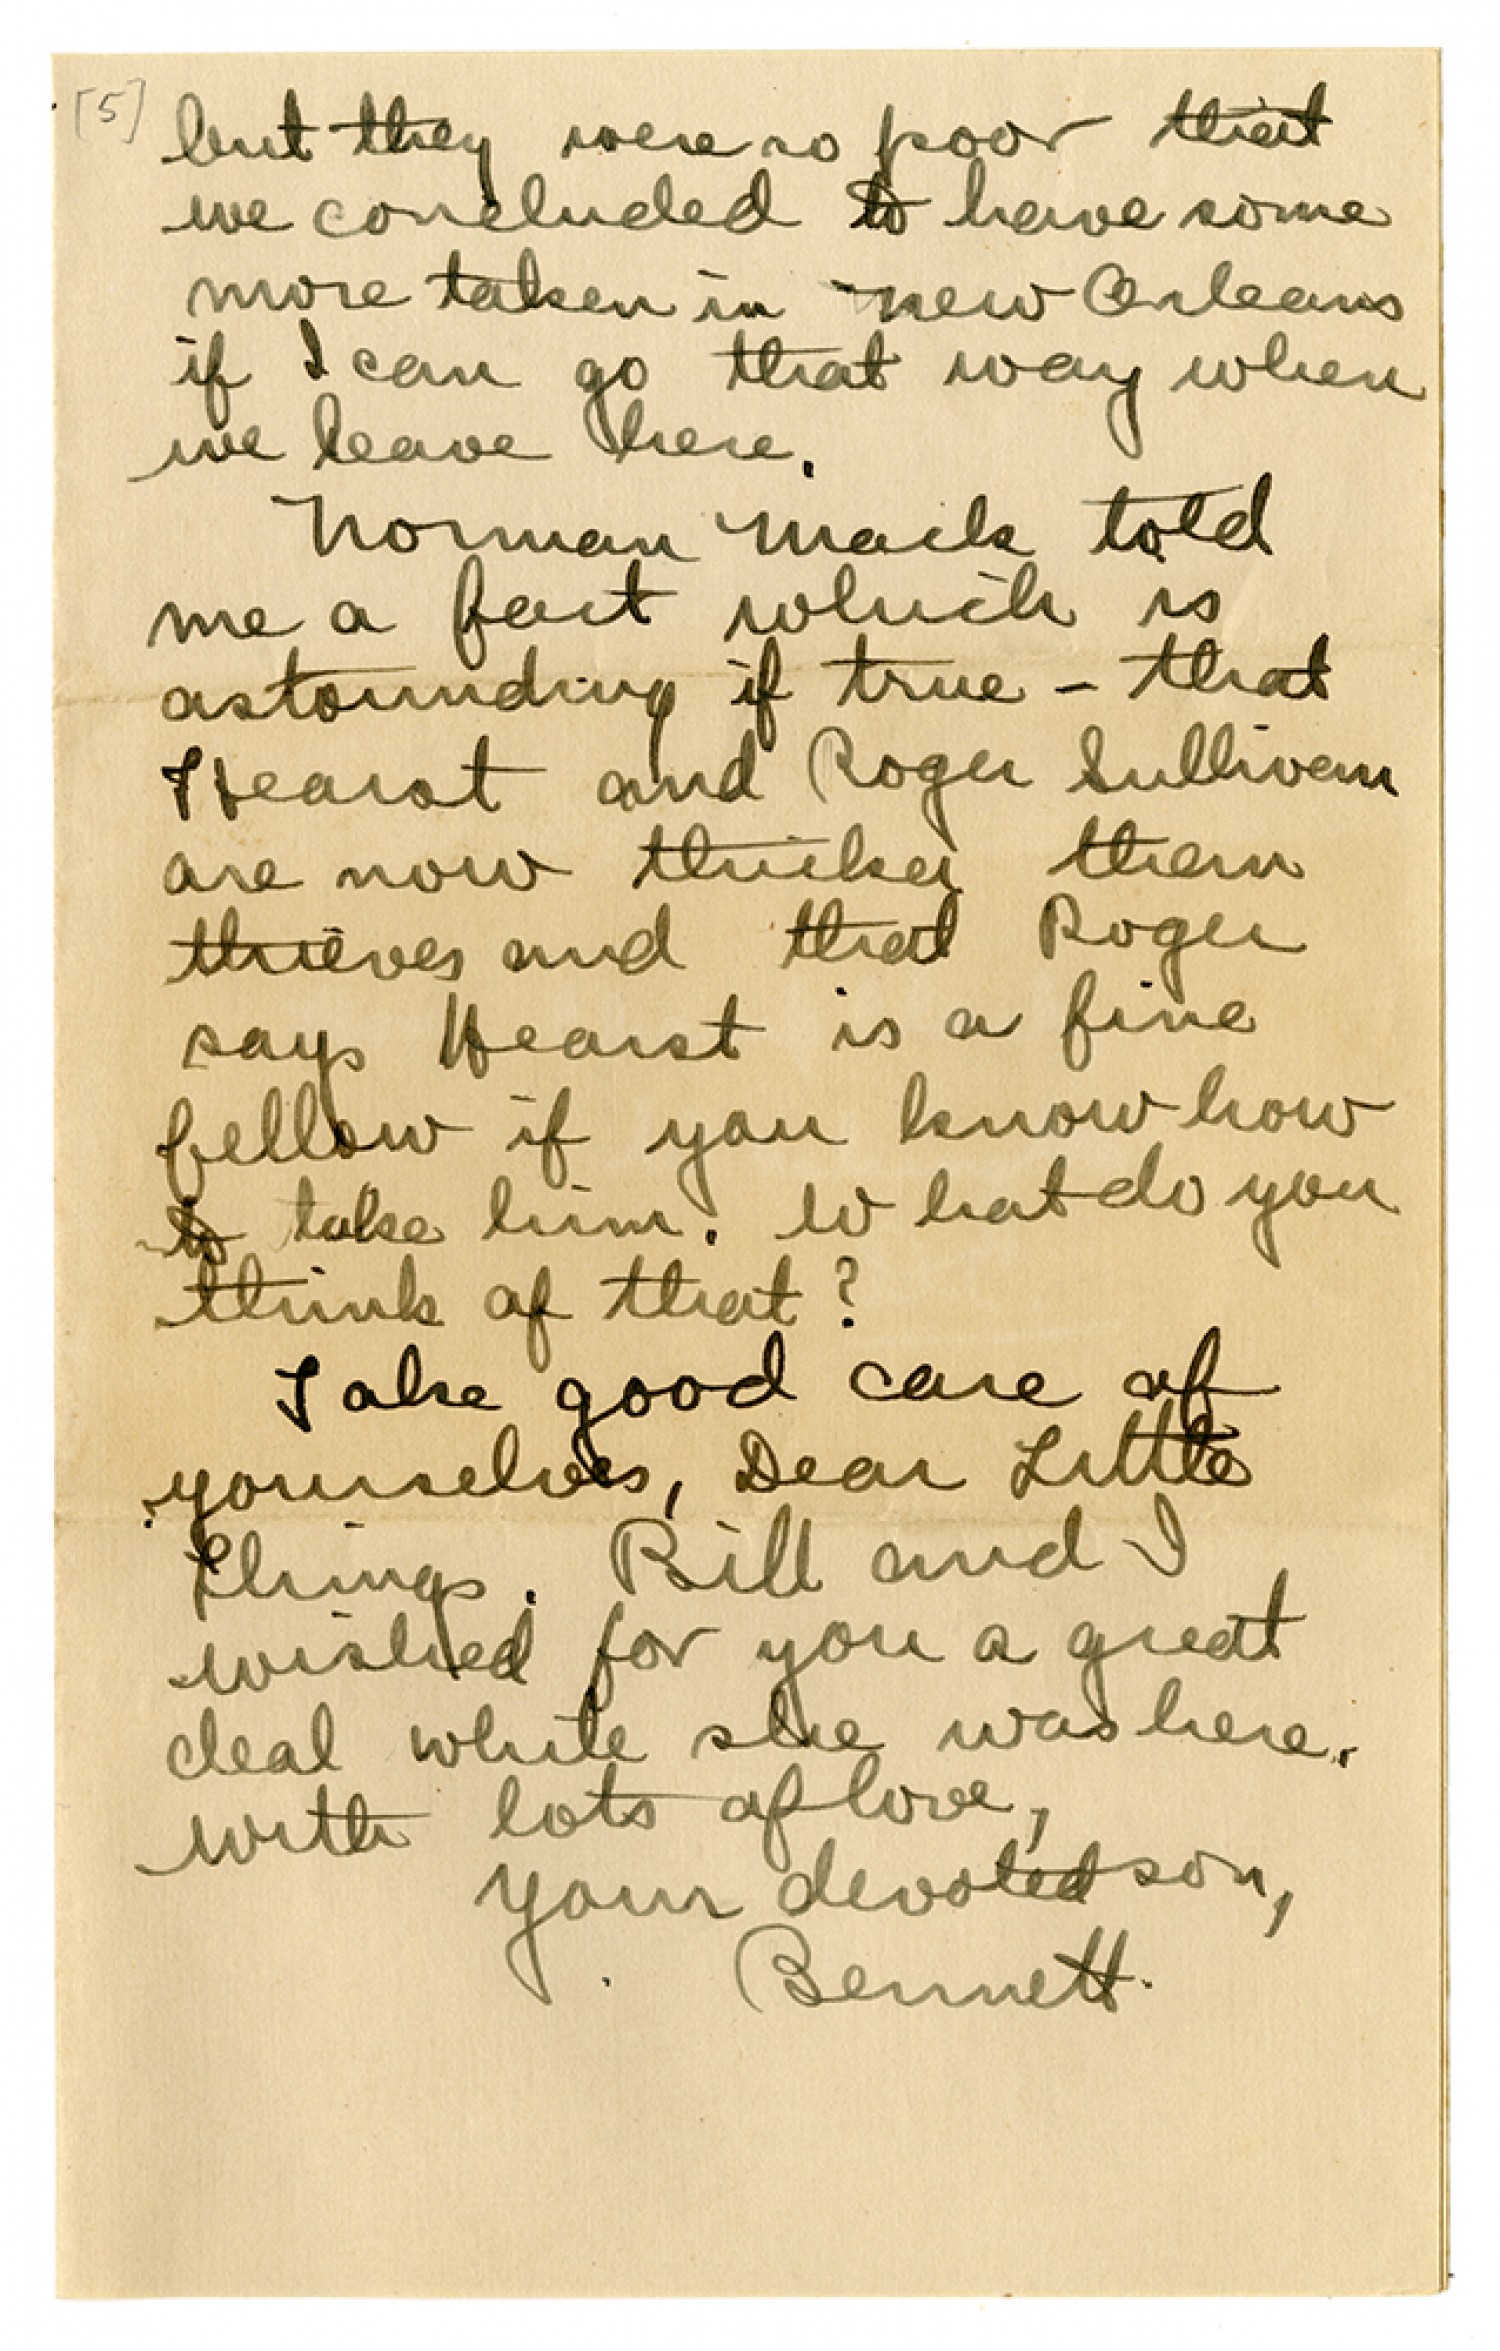 [5]
but they were so poor that
we concluded to have some
more taken in New Orleans
if I can go that way when
we leave here.
Norman Mack told
me a fact which is
astounding if true - that
Hearst and Roger Sullivan
are now thicker than
thieves and that Roger
says Hearst is a fine
fellow if you know how
to take him. What do you
think of that?
Take good care of
yourselves, Dear Little
Things. Bill and I
wished for you a great
deal while she was here.
With lots of love,
Your devoted son,
Bennett.